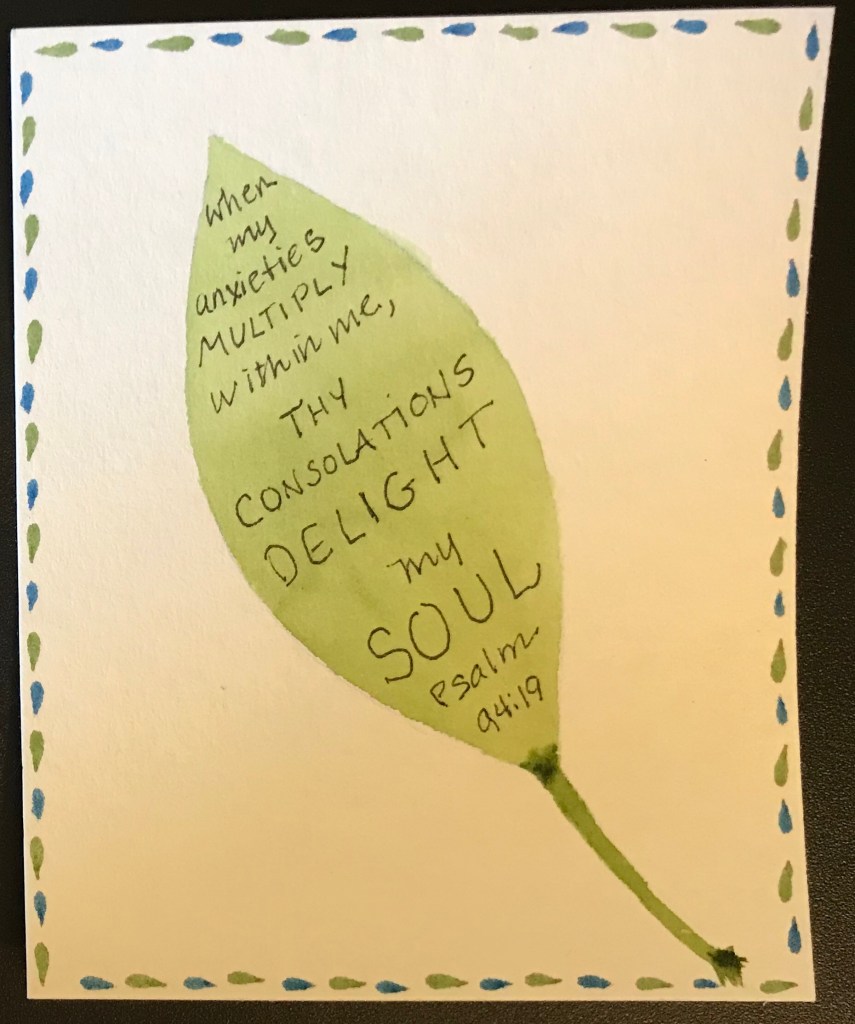 when
my
anxieties
MULTIPLY
within me,
THY
CONSOLATIONS
DELIGHT
my
SOUL
psalm
94:19